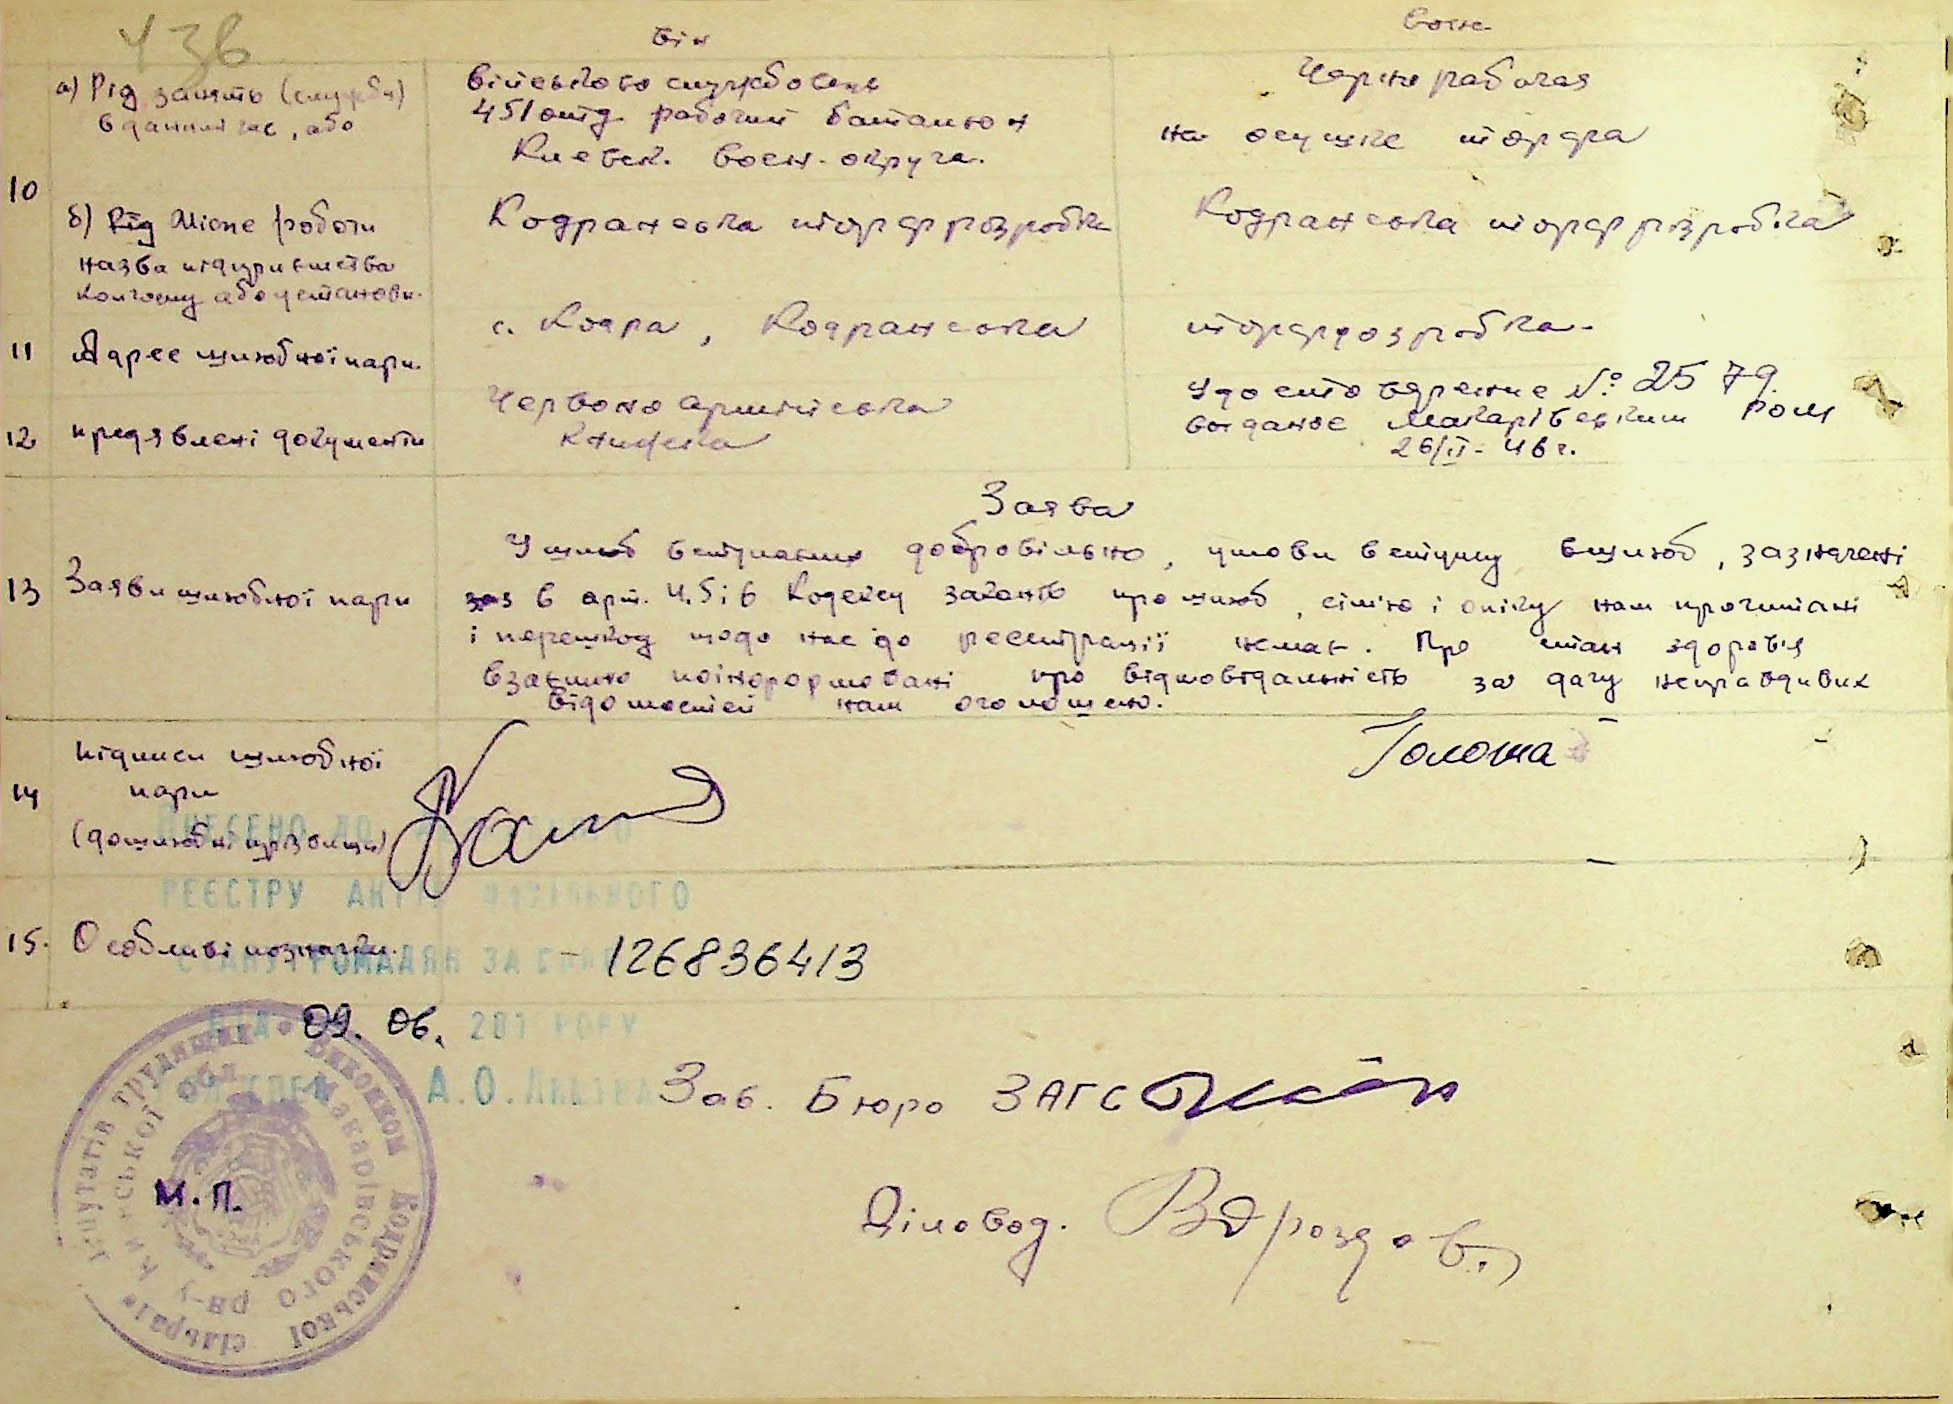 436
він
вона
а) Рід занять (служби)
в данний час, або
військово службовець
451 отд. рабочий батальон
Киевск. воен. округа.
Чернорабочая
на осушке торфа
10
б) Рід Місце роботи
назва підприємства
колгоспу або установи.
Кодранська торфрозробка
Кодранська торфрозробка
11
Адрес шлюбної пари.
с. Кодра, Кодранська торфрозробка.
12
предявлені документи
Червоноармійська
книжка
Удостоверение № 2579.
выданое Макарівским РОМ
26/II-46 г.
Заява
13
Заяви шлюбної пари
У шлюб вступаємо добровільно, умови вступу в шлюб, зазначені
в арт. 4, 5 і 6 Кодексу законів про шлюб, сім'ю і опіку нам прочитані
і перешкод щодо нас до реєстрації немає. Про стан здоров'я
взаємно поінформовані про відповідальність за дачу неправдивих
відомостей нам оголошено.
14
Підписи шлюбної
пари
(дошлюбні прізвища)
Голота
ВНЕСЕНО ДО
РЕЄСТРУ АКТІВ ЦИВІЛЬНОГО
СТАНУ ГРОМАДЯН ЗА
15.
Особливі познački.
126836413
ВІД 09. 06. 201 РОКУ
А.О.
Зав. Бюро ЗАГС
М.П.
Виконком Кодрянської сільради депутатів трудящих
Макарівського р-ну Київської обл
Діловод. В Дроздов